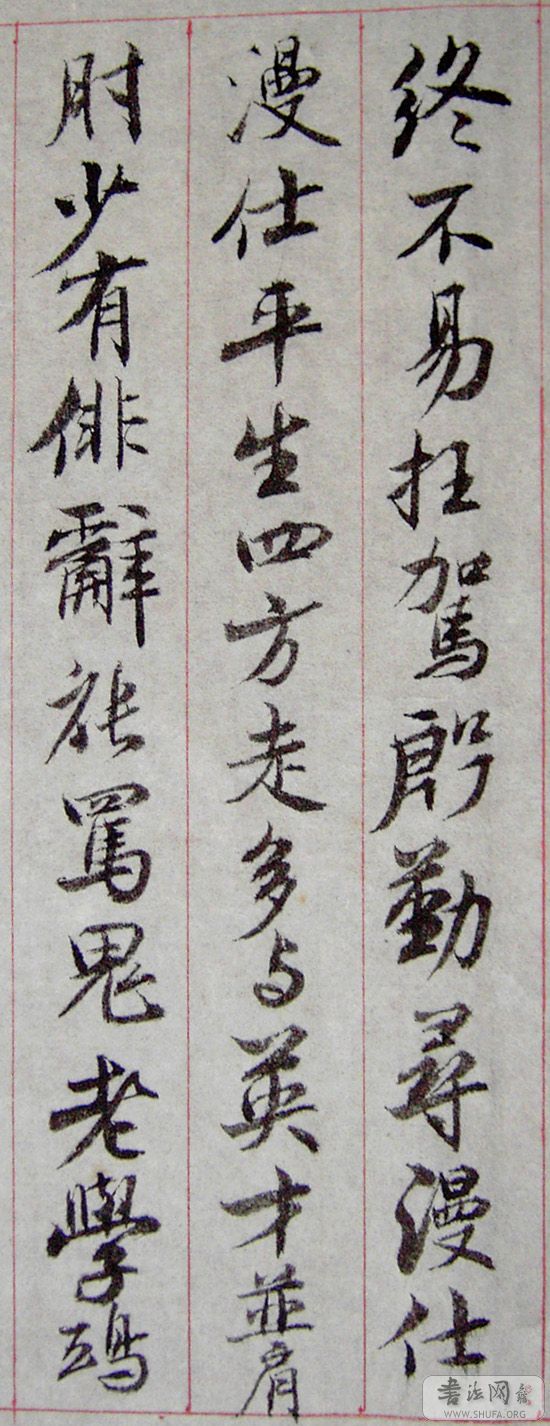 终不易抂駕殷勤尋漫仕
漫仕平生四方走多与英才並肩
肘少有俳辭能罵鬼老學鴻
書法网
WWW.SHUFA.ORG